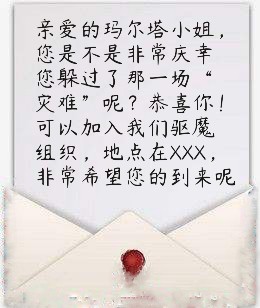 亲爱的玛尔塔小姐，
您是不是非常庆幸
您躲过了那一场“
灾难”呢？恭喜你！
可以加入我们驱魔
组织，地点在XXX，
非常希望您的到来呢